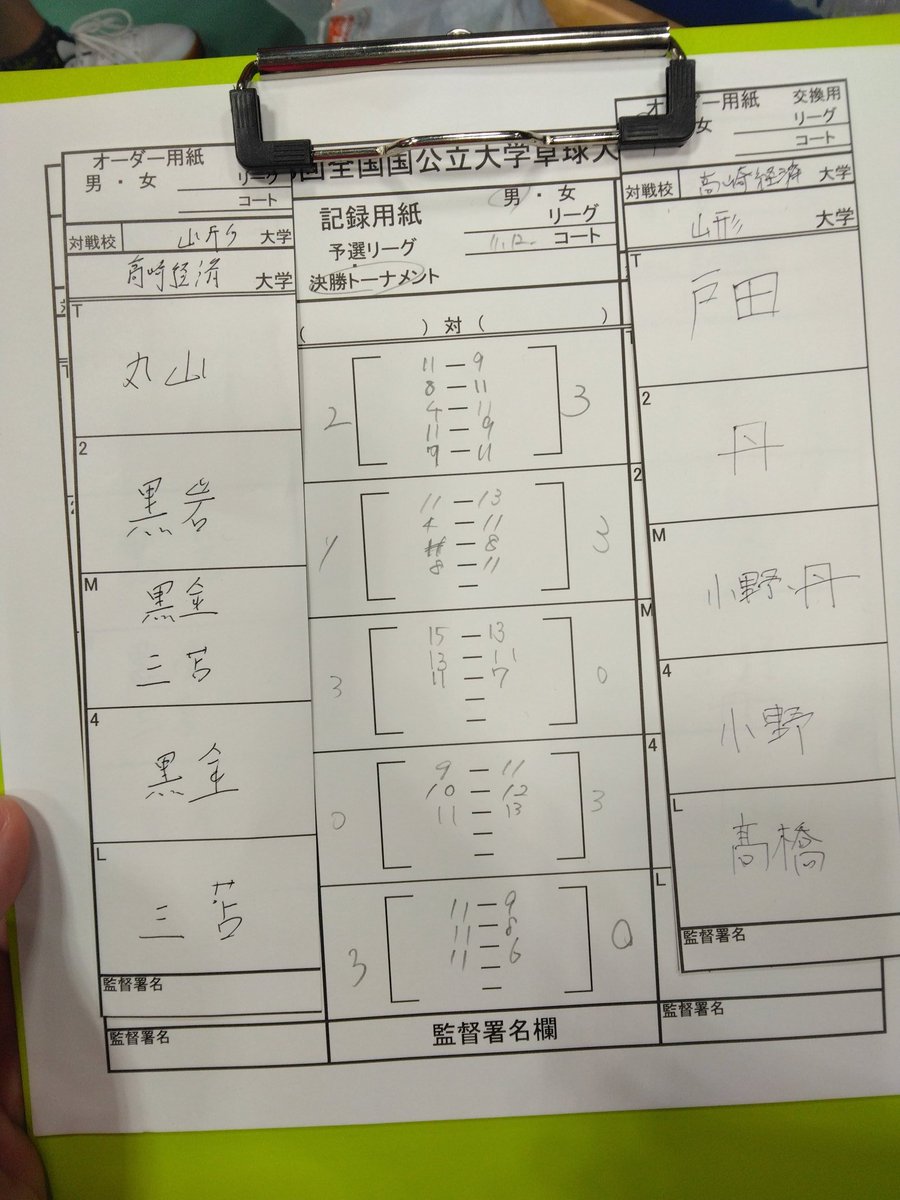 オーダー用紙
男 ・ 女 リーグ
コート
対戦校 山形 大学
高崎経済 大学
T
丸山
2
黒岩
M
黒金
三苫
4
黒金
L
三苫
監督署名
監督署名
回全国国公立大学卓球大
記録用紙 男 ・ 女
予選リーグ リーグ
11.12. コート
決勝トーナメント
( ) 対 ( )
2 3
11 — 9
8 — 11
4 — 11
11 — 9
9 — 11
1 3
11 — 13
4 — 11
11 — 8
8 — 11
—
3 0
15 — 13
13 — 11
11 — 7
—
—
0 3
9 — 11
10 — 12
11 — 13
—
—
3 0
11 — 9
11 — 8
11 — 6
—
—
監督署名欄
T
2
M
4
L
オーダー用紙 交換用
女 リーグ
コート
対戦校 高崎経済 大学
山形 大学
T
戸田
2
丹
M
小野 丹
4
小野
L
髙橋
監督署名
監督署名